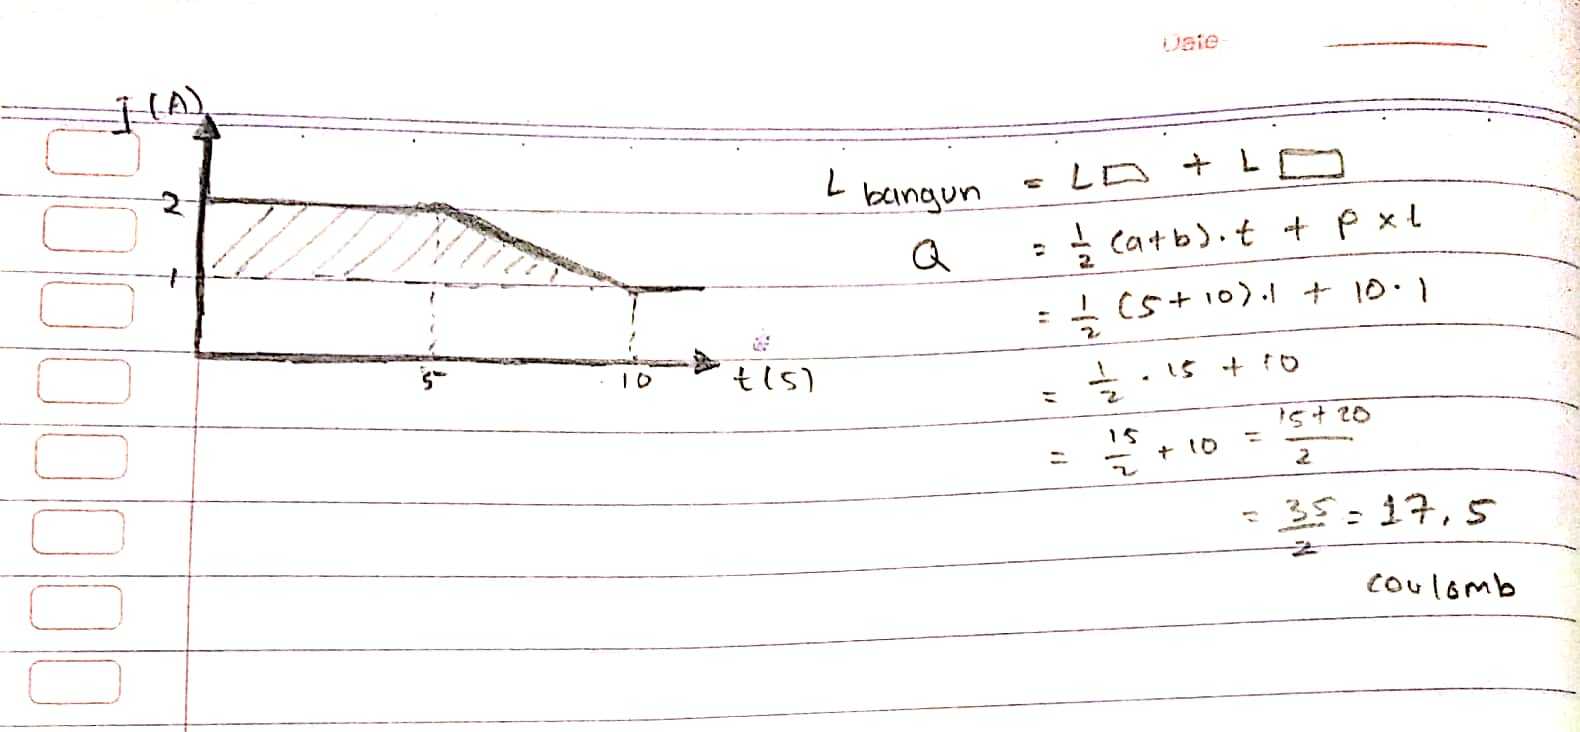 Date
I (A)
2
1
5
10
t(s)
L bangun = L⏢ + L▭
Q = 1/2 (a+b).t + p x l
= 1/2 (5+10).1 + 10.1
= 1/2 . 15 + 10
= 15/2 + 10 = 15+20/2
= 35/2 = 17,5
coulomb